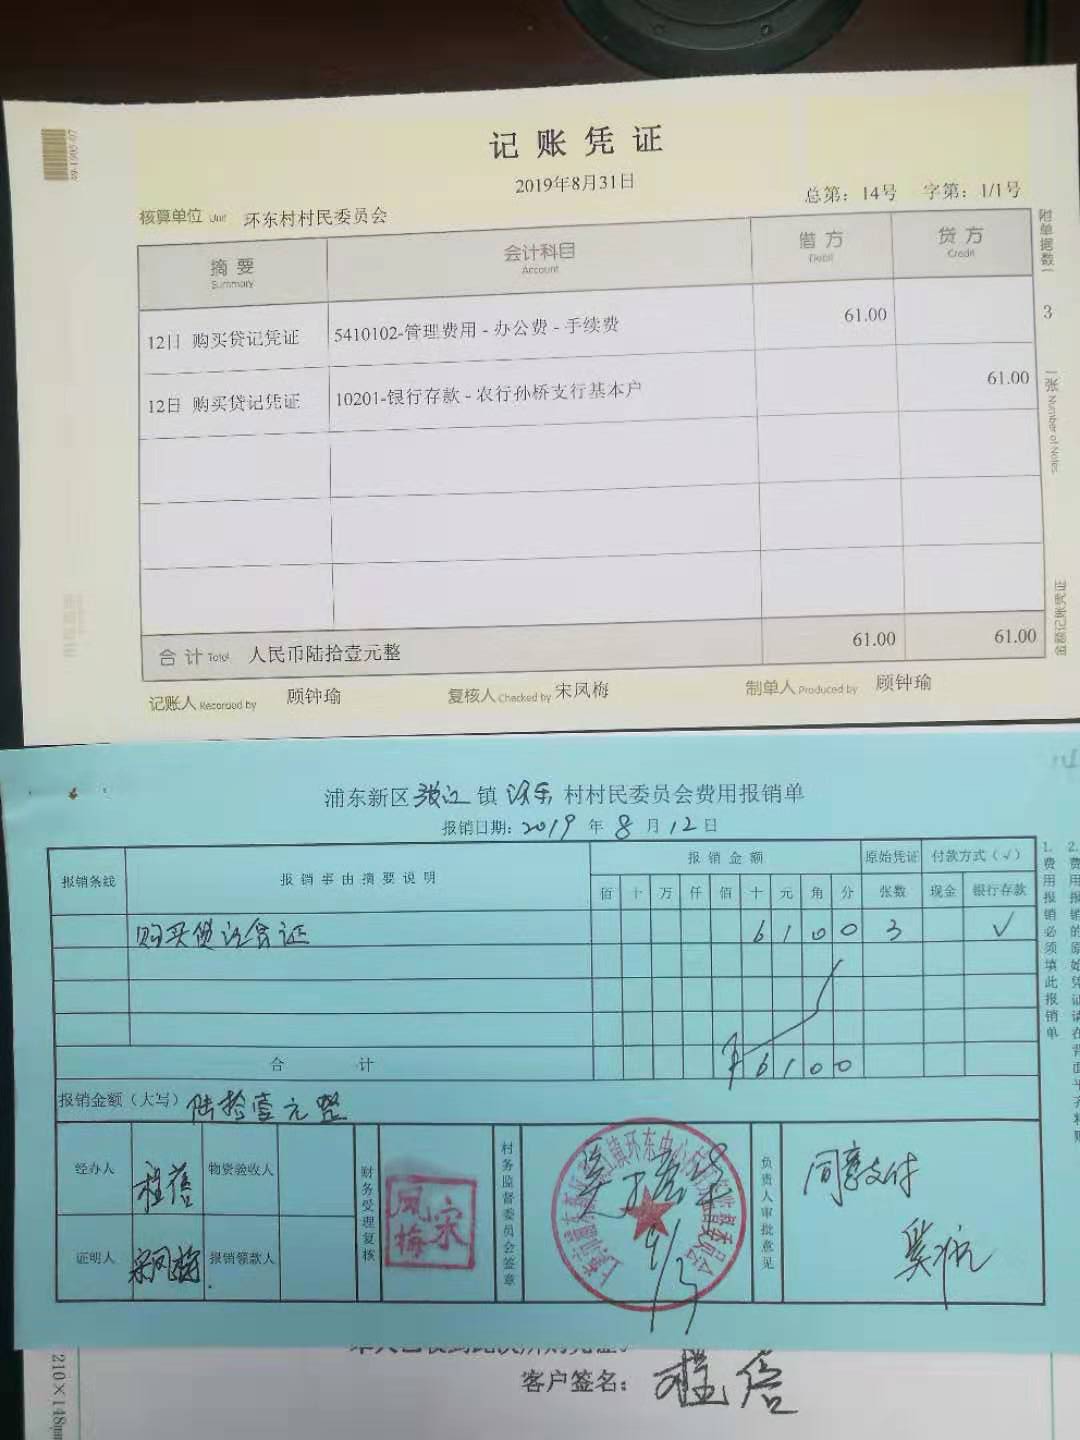 记账凭证
2019年8月31日
总第：14号 字第：1/1号
核算单位 Unit 环东村村民委员会
附单据数
摘要 会计科目 借方 贷方
Summary Account Debit Credit
12日 购买贷记凭证 5410102-管理费用 - 办公费 - 手续费 61.00
3
12日 购买贷记凭证 10201-银行存款 - 农行孙桥支行基本户 61.00
张
合计 Total 人民币陆拾壹元整 61.00 61.00
金额记账凭证
记账人 Recorded by 顾钟瑜 复核人 Checked by 宋凤梅 制单人 Produced by 顾钟瑜
浦东新区张江镇环东村村民委员会费用报销单
报销日期：2019年8月12日
报销条线 报销事由摘要说明 报销金额 原始凭证 付款方式（√）
佰 十 万 仟 佰 十 元 角 分 张数 现金 银行存款
购买贷记凭证 6 1 0 0 3 √
合计 ¥ 6 1 0 0
报销金额（大写）陆拾壹元整
经办人 桂蓓 物资验收人
证明人 宋凤梅 报销领款人
财务受理复核
宋凤梅
村务监督委员会签章
9/3
负责人审批意见
同意支付
1.费用报销必须填此报销单
客户签名：桂蓓
210×148mm